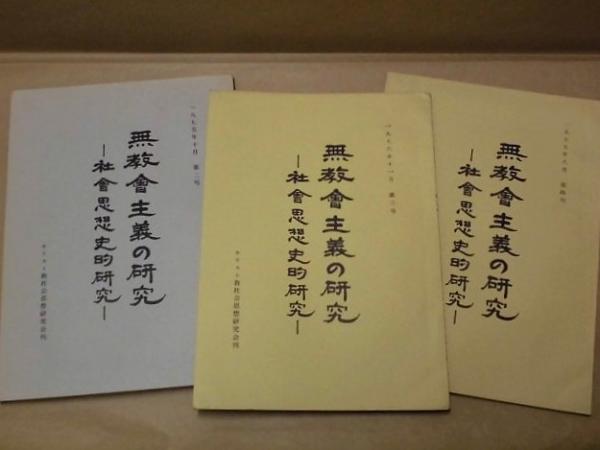 一九七五年十月 第二号
無教會主義の研究
―社會思想史的研究―
キリスト教社会思想研究会刊
一九七六年十一月 第三号
無教會主義の研究
―社會思想史的研究―
キリスト教社会思想研究会刊
無教會主義の研究
―社會思想史的研究―